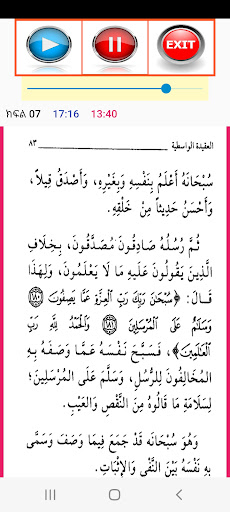 EXIT
ክፍል 07 17:16 13:40
العقيدة الواسطية ٨٣
سُبْحَانَهُ أَعْلَمُ بِنَفْسِهِ وَبِغَيْرِهِ، وَأَصْدَقُ قِيلاً،
وَأَحْسَنُ حَدِيثاً مِنْ خَلْقِهِ.
ثُمَّ رُسُلُهُ صَادِقُونَ مُصَدَّقُونَ، بِخِلَافِ
الَّذِينَ يَقُولُونَ عَلَيْهِ مَا لَا يَعْلَمُونَ، وَلِهَذَا
قَالَ: ﴿سُبْحَٰنَ رَبِّكَ رَبِّ الْعِزَّةِ عَمَّا يَصِفُونَ ١٨٠
وَسَلَٰمٌ عَلَى الْمُرْسَلِينَ ١٨١ وَالْحَمْدُ لِلَّهِ رَبِّ
الْعَٰلَمِينَ﴾، فَسَبَّحَ نَفْسَهُ عَمَّا وَصَفَهُ بِهِ
المُخَالِفُونَ لِلرُّسُلِ، وَسَلَّمَ عَلَى المُرْسَلِينَ؛
لِسَلَامَةِ مَا قَالُوهُ مِنَ النَّقْصِ وَالعَيْبِ.
وَهُوَ سُبْحَانَهُ قَدْ جَمَعَ فِيمَا وَصَفَ وَسَمَّى
بِهِ نَفْسَهُ بَيْنَ النَّفْيِ وَالإِثْبَاتِ.